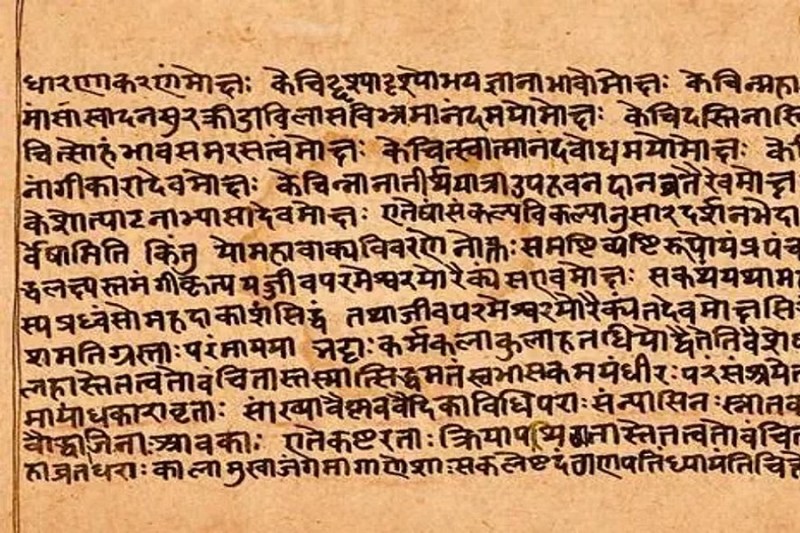 धारणाकरणंमोक्षः केचिदृश्यादृश्योभयज्ञानाभावोमोक्षः केचिन्महा
मांसास्वादनसुरक्रीडाविलाससंविभ्रमानंदमयोमोक्षः केचिदस्तिनास्ति
चित्सोहंभावसमरसत्वंमोक्षः केचित्स्वात्मानंदबोधमयोमोक्षः के
नांगीकारादेवमोक्षः केचिन्नानातीर्थयात्राउपहवनदानव्रतैरेवमोक्ष
केशोत्पाटनाभ्यासादेवमोक्षः एतेषांसंकल्पविकल्पानुसारदर्शनभेदा
र्वेषामिति किंतु योमहावाक्यविवरणे नोक्तः समष्टिव्यष्टिरूपोयंप्रपंच
द्वलक्ष्यस्तमंगीकृत्य जीवपरमेश्वरयोरैक्यं सएवमोक्षः सकथयथाम
स्यप्रध्वंसोमहदाकाशंसिद्धं तथाजीवपरमेश्वरयोरैक्यंतदेवमोक्षसि
शमतिग्रस्ताःपरंमायया नष्टाःकर्मकलाकुलाहतधियोद्वैतेतिवैशे
लहास्तेतत्वतोवंचितास्तस्मात्सिद्धमतंस्वभासकमयंधीरःपरंसंश्रये
मायांधकारावृताः सांख्यावैष्णववैदिकाविधिपराःसंन्यासिनःस्नातक
बौद्धाजिनाःश्रावकाः एतेकष्टरताः क्रियापथि गतास्तेतत्वतोवंचि
हाव्रतधराः कालामुखाजंगमागाणेशाः सकलेष्टदंगणपतिंध्यायंतिचि